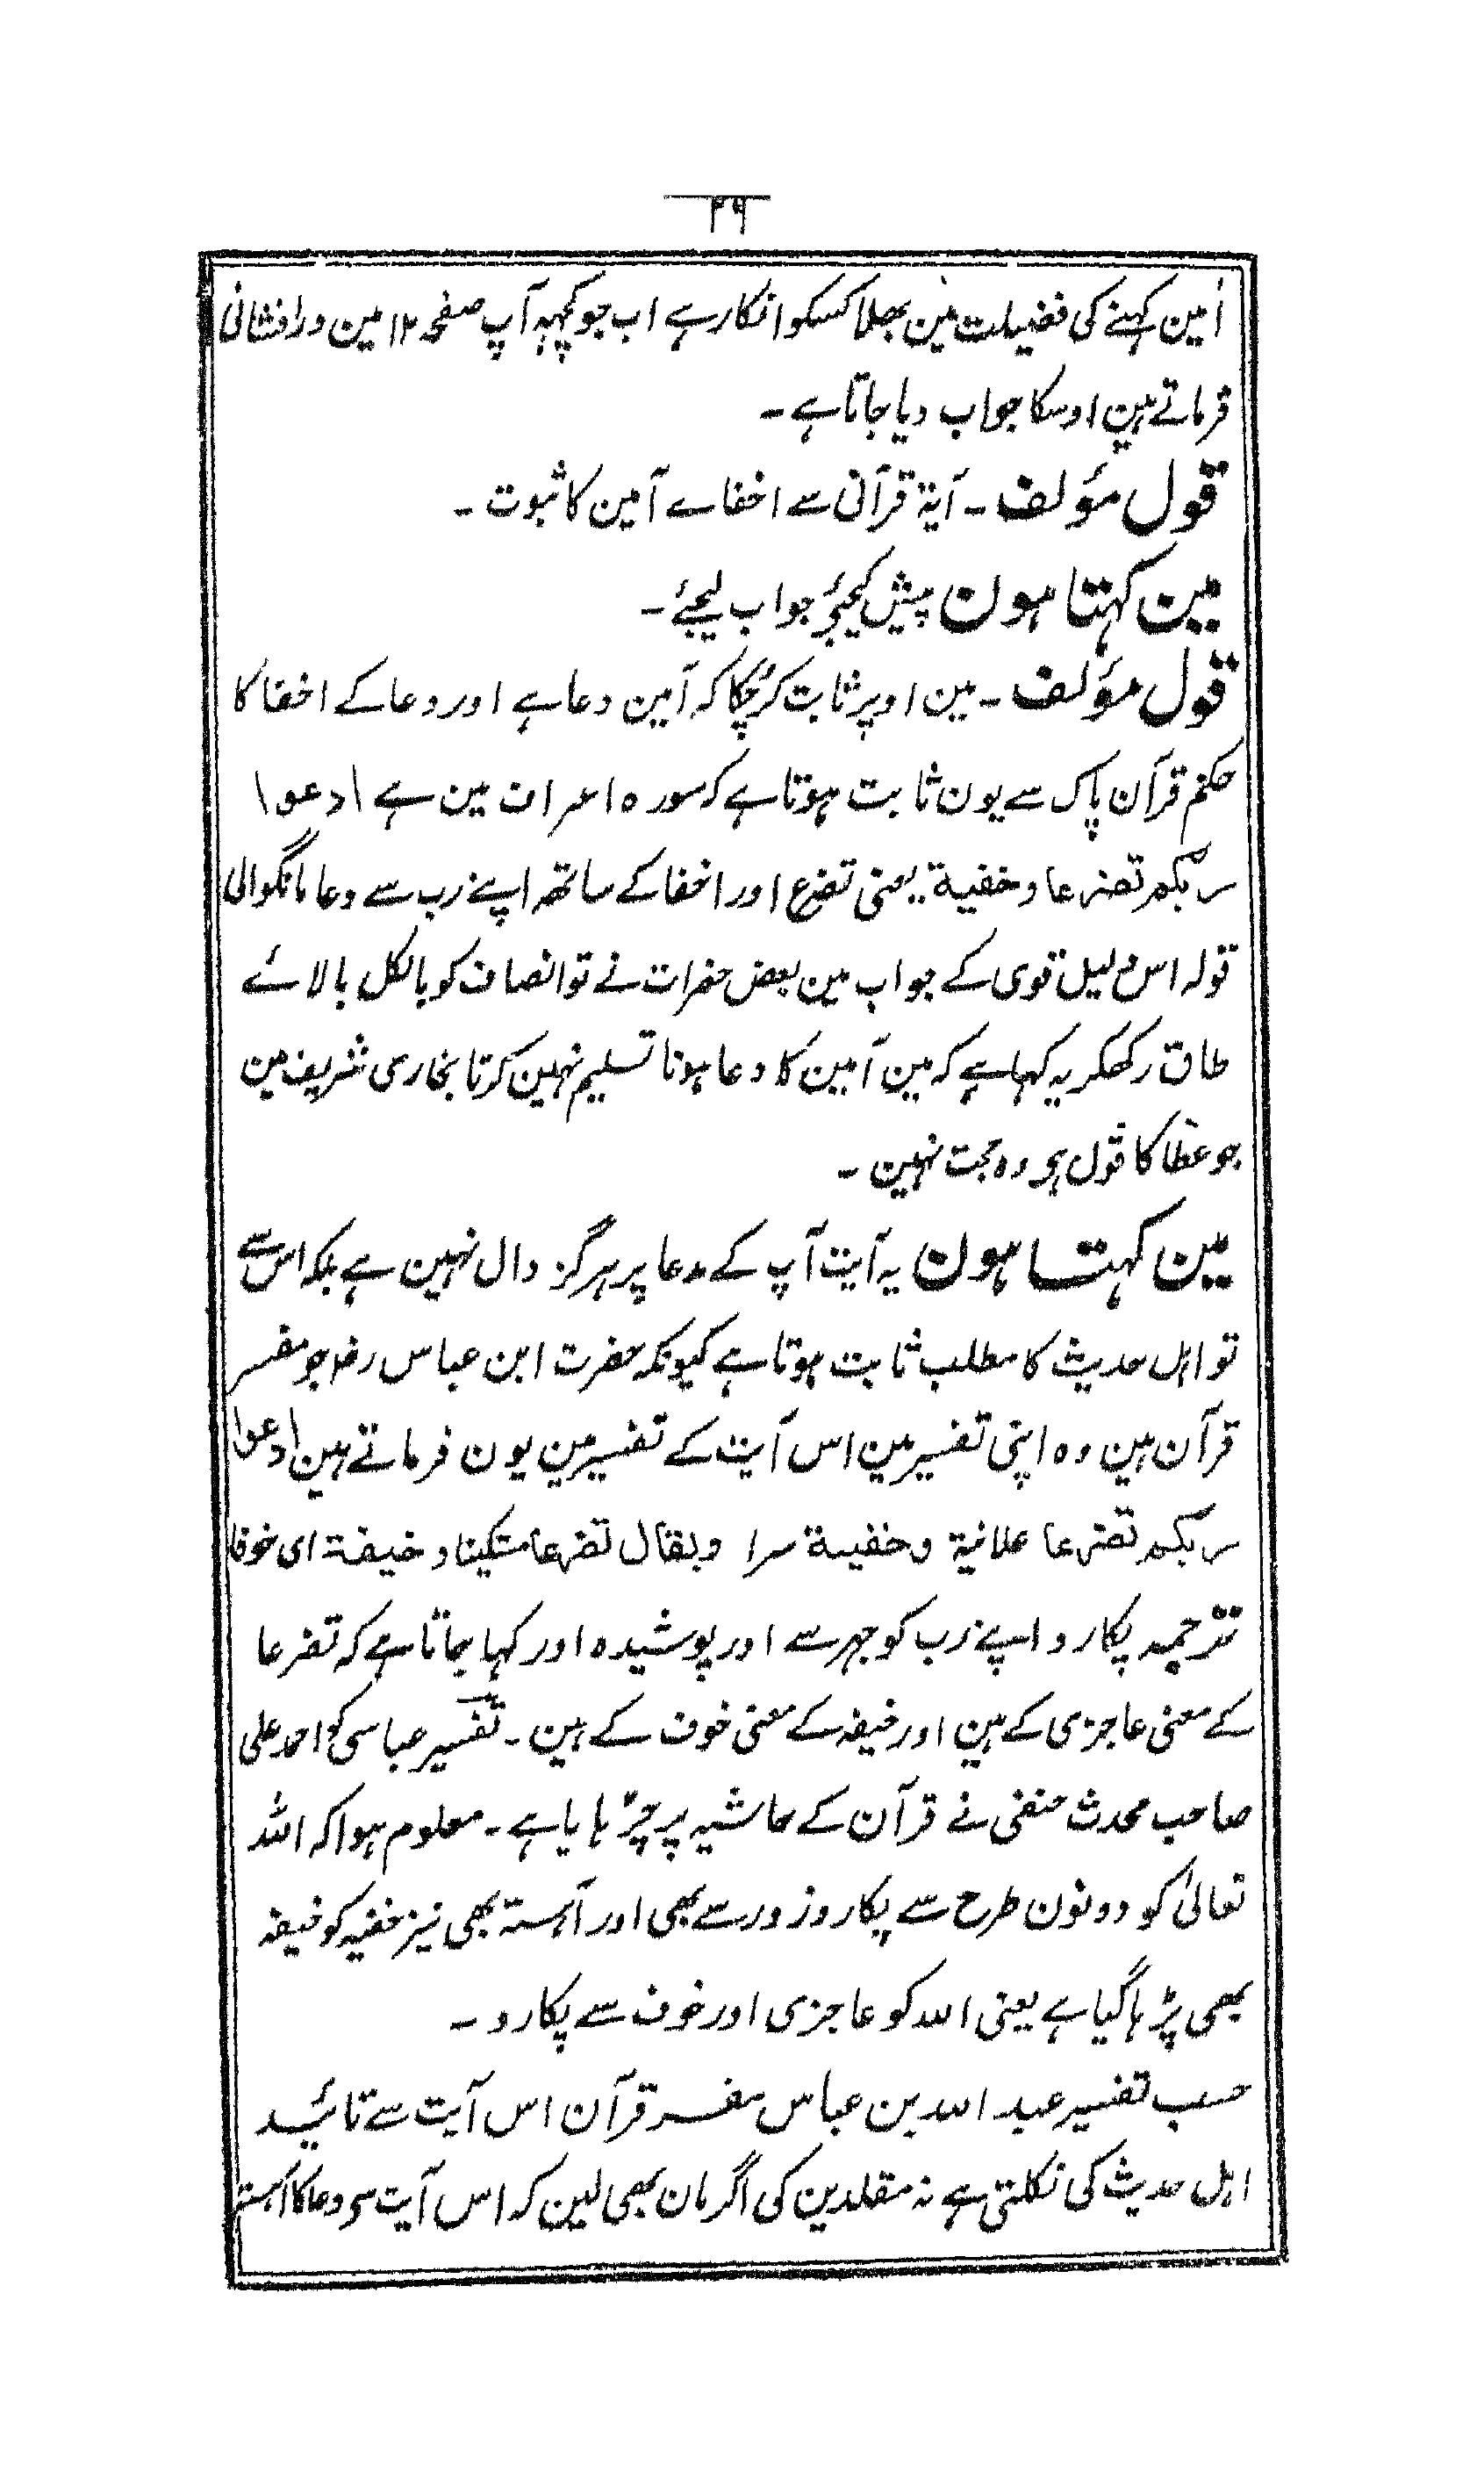 ۲۹
آمین کہنے کی فضیلت مین بھلا کسکو انکار ہے اب جو کچھہ آپ صفحہ ۱۲ مین درافشانی
فرماتے ہین اوسکا جواب دیا جاتا ہے ۔
قول مؤلف ۔ آیۃ قرآنی سے اخفاے آمین کا ثبوت ۔
مین کہتا ہون پیش کیجئے جواب لیجئے ۔
قول مؤلف ۔ مین اوپر ثابت کر چکا کہ آمین دعا ہے اور دعا کے اخفا کا
حکم قرآن پاک سے یون ثابت ہوتا ہے کہ سورہ اعراف مین ہے ادعوا
ربکم تضرعا وخفیۃ یعنی تضرع اور اخفا کے ساتھ اپنے رب سے دعا مانگو الی
قولہ اس دلیل قوی کے جواب مین بعض حضرات نے تو انصاف کو بالکل بالائے
طاق رکھکر یہ کہا ہے کہ مین آمین کا دعا ہونا تسلیم نہین کرتا بخاری شریف مین
جو عطا کا قول ہو وہ حجت نہین ۔
مین کہتا ہون یہ آیت آپ کے مدعا پر ہرگز دال نہین ہے بلکہ اس سے
تو اہل حدیث کا مطلب ثابت ہوتا ہے کیونکہ حضرت ابن عباس رضہ جو مفسر
قرآن ہین وہ اپنی تفسیر مین اس آیت کے تفسیر مین یون فرماتے ہین ادعوا
ربکم تضرعا علانیۃ وخفیۃ سرا ویقال تضرعا مستکینا وخیفۃ ای خوفا
ترجمہ پکارو اپنے رب کو جہر سے اور پوشیدہ اور کہا جاتا ہے کہ تضرعا
کے معنی عاجزی کے ہین اور خیفہ کے معنی خوف کے ہین ۔ تفسیر عباسی کو احمد علی
صاحب محدث حنفی نے قرآن کے حاشیہ پر چڑہایا ہے ۔ معلوم ہوا کہ اللہ
تعالیٰ کو دونون طرح سے پکارو زور سے بھی اور آہستہ بھی نیز خفیہ کو خیفہ
بھی پڑہا گیا ہے یعنی اللہ کو عاجزی اور خوف سے پکارو ۔
حسب تفسیر عبد اللہ بن عباس مفسر قرآن اس آیت سے تائید
اہل حدیث کی نکلتی ہے نہ مقلدین کی اگر مان بھی لین کہ اس آیت سے دعا کا آہستہ